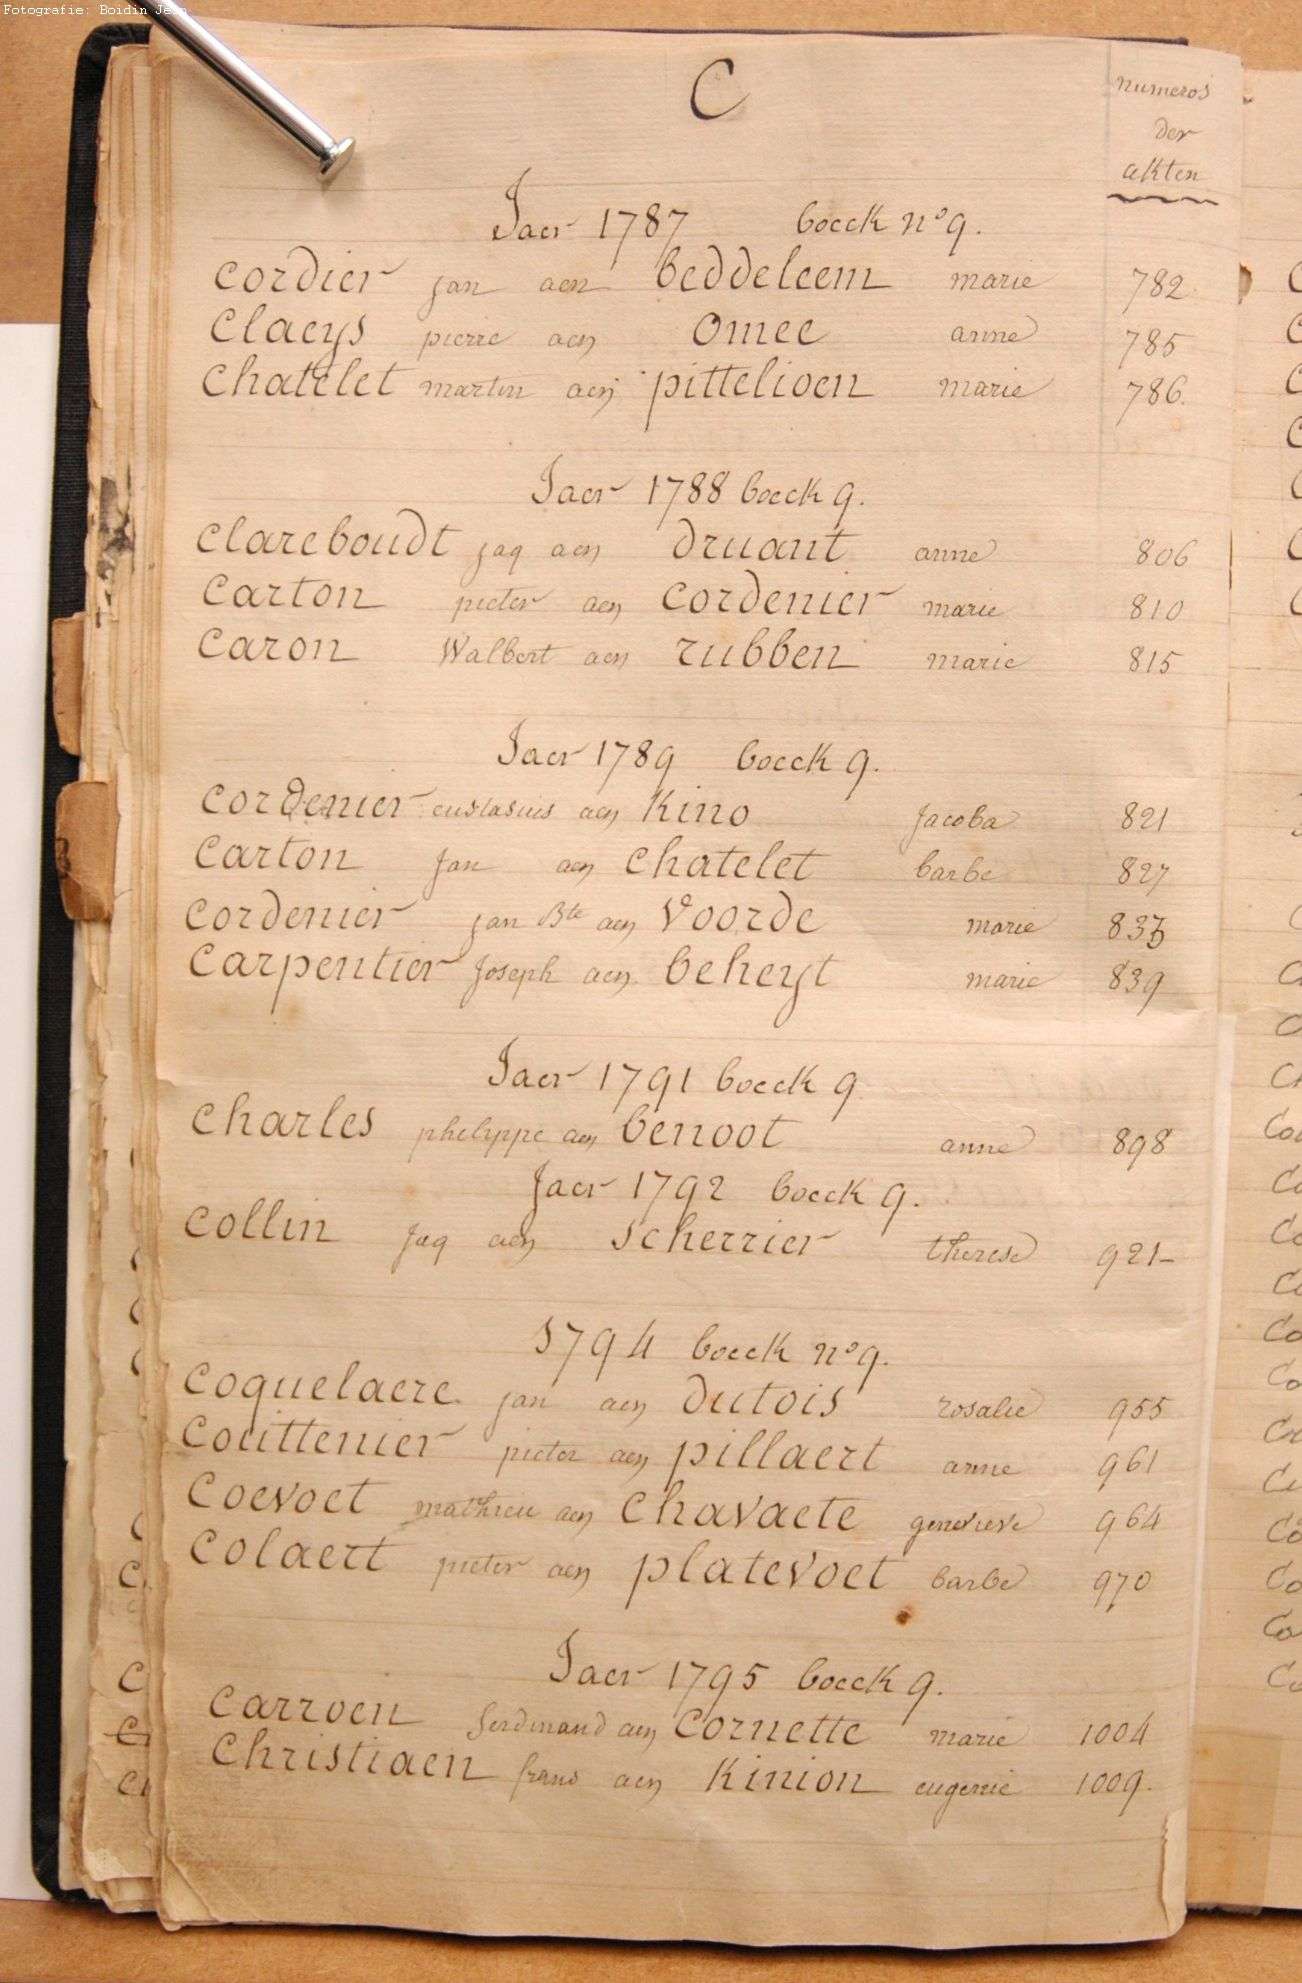 Fotografie: Boidin Jean
C
numeros
der
akten
Jaer 1787 boeck n° 9.
Cordier jan aen beddeleem marie 782
Claeys pierre aen Omee anne 785
Chatelet martin aen pittelioen marie 786.
Jaer 1788 boeck 9.
Clareboudt jaq aen druant anne 806
Carton pieter aen Cordenier marie 810
Caron Walbert aen rubben marie 815
Jaer 1789 boeck 9.
Cordenier eustasius aen Kino Jacoba 821
Carton Jan aen Chatelet barbe 827
Cordenier jan Bte aen Voorde marie
Carpentier Joseph aen beheyt marie 839
Jaer 1791 boeck 9
Charles phelippe aen benoot anne 898
Jaer 1792 boeck 9.
Collin Jaq aen Scherrier therese 921-
1794 boeck n° 9.
Coquelaere jan aen dutois rosalie 955
Couttenier pieter aen pillaert anne 961
Coevoet mathieu aen Chavaete genevieve 964
Colaert pieter aen platevoet barbe 970
Jaer 1795 boeck 9.
Carroen ferdinand aen Cornette marie 1004
Christiaen frans aen Kinion eugenie 1009.